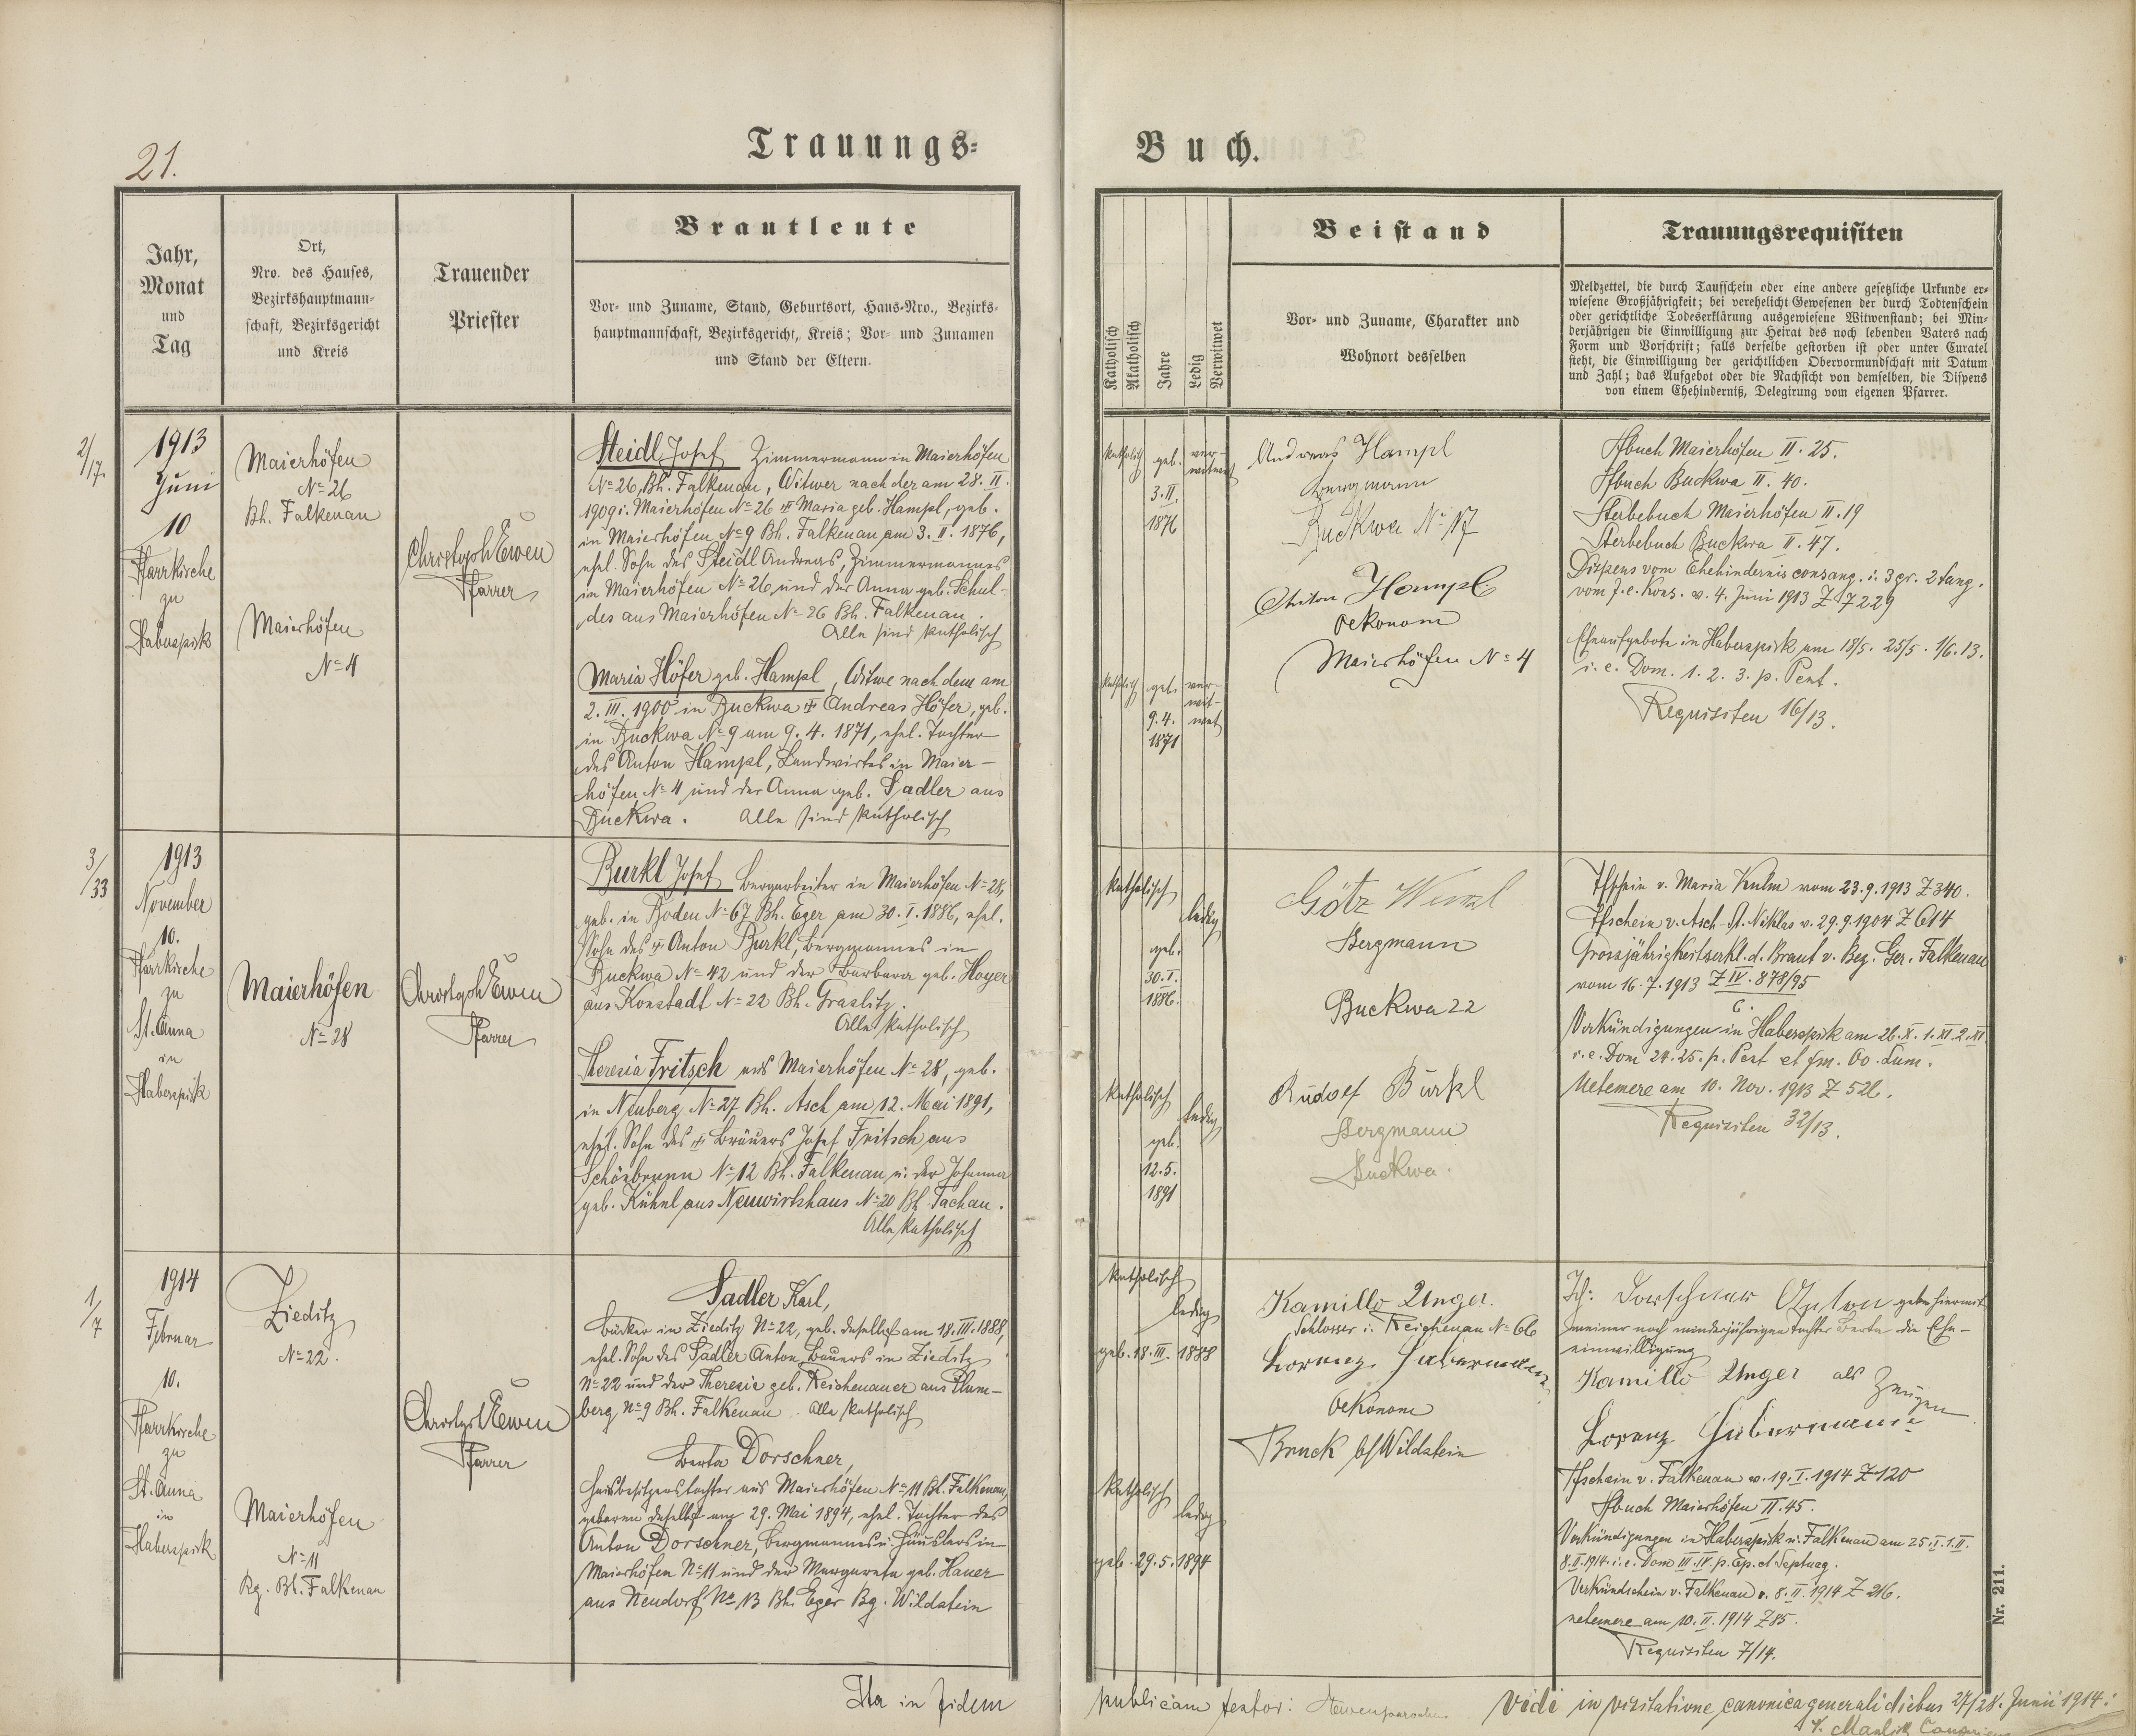 21.
Trauungs-
Buch.
Jahr,
Monat
und
Tag
Ort,
Nro. des Hauses,
Bezirkshauptmann-
schaft, Bezirksgericht
und Kreis
Trauender
Priester
Brautleute
Vor- und Zuname, Stand, Geburtsort, Haus-Nro., Bezirks-
hauptmannschaft, Bezirksgericht, Kreis; Vor- und Zunamen
und Stand der Eltern.
Katholisch
Akatholisch
Jahre
Ledig
Verwitwet
Beistand
Vor- und Zuname, Charakter und
Wohnort desselben
Trauungsrequisiten
Meldzettel, die durch Taufschein oder eine andere gesetzliche Urkunde er-
wiesene Großjährigkeit; bei verehelicht Gewesenen der durch Todtenschein
oder gerichtliche Todeserklärung ausgewiesene Witwenstand; bei Min-
derjährigen die Einwilligung zur Heirat des noch lebenden Vaters nach
Form und Vorschrift; falls derselbe gestorben ist oder unter Curatel
steht, die Einwilligung der gerichtlichen Obervormundschaft mit Datum
und Zahl; das Aufgebot oder die Nachsicht von demselben, die Dispens
von einem Ehehinderniß, Delegirung vom eigenen Pfarrer.
2/17.
1913
Juni
10
Pfarrkirche
zu
Haberspirk
Maierhöfen
No 26
Bh. Falkenau
Maierhöfen
No 4
Christoph Ewen
Pfarrer
Steidl Josef Zimmermann in Maierhöfen
No 26, Bh. Falkenau, Witwer nach der am 28. II.
1909 i. Maierhöfen No 26 † Maria geb. Hampl, geb.
in Maierhöfen No 9 Bh. Falkenau am 3. II. 1876,
ehel. Sohn des Steidl Andreas, Zimmermannes
in Maierhöfen No 26, und der Anna geb. Schul-
des aus Maierhöfen No 26 Bh. Falkenau.
Alle sind katholisch
Maria Höfer geb. Hampl, Witwe nach dem am
2. III. 1900 in Buckwa † Andreas Höfer, geb.
in Buckwa No 9 am 9. 4. 1871, ehel. Tochter
des Anton Hampl, Landwirtes in Maier-
höfen No 4 und der Anna geb. Sadler aus
Buckwa. Alle sind katholisch
katholisch geb. ver-
witwet
3. II.
1876
katholisch geb. ver-
wit-
9. 4. wet
1871
Andreas Hampl
Bergmann
Buckwa No 17
Anton Hampl
Oekonom
Maierhöfen No 4
Tfbuch Maierhöfen II. 25.
Tfbuch Buckwa II. 40.
Sterbebuch Maierhöfen II. 19
Sterbebuch Buckwa II. 47.
Dispens vom Ehehindernis consang. i. 3 gr. 2 tang.
vom f. e. Kons. v. 4. Juni 1913 Z 7229
Eheaufgebote in Haberspirk am 18/5. 25/5. 1/6. 13.
i. e. Dom. 1. 2. 3. p. Pent.
Requisiten 16/13.
3/33
1913
November
10.
Pfarrkirche
zu
St. Anna
in
Haberspirk
Maierhöfen
No 28
Christoph Ewen
Pfarrer
Burkl Josef Bergarbeiter in Maierhöfen No 28,
geb. in Boden No 67 Bh. Eger am 30. I. 1886, ehel.
Sohn des † Anton Burkl, Bergmannes in
Buckwa No 42 und der Barbara geb. Hoyer
aus Konstadt No 22 Bh. Graslitz.
Alle katholisch
Theresia Fritsch aus Maierhöfen No 28, geb.
in Neuberg No 27 Bh. Asch am 12. Mai 1891,
ehel. Sohn des † Bräuers Josef Fritsch aus
Schösbrunn No 12 Bh. Falkenau u. der Johanna
geb. Kühnl aus Neuwirtshaus No 20 Bh. Tachau.
Alle katholisch
katholisch
ledig
geb.
30. I.
1886.
katholisch
ledig
geb.
12. 5.
1891
Götz Wenzl
Bergmann
Buckwa 22
Rudolf Burkl
Bergmann
Buckwa.
Tfschein v. Maria Kulm vom 23. 9. 1913 Z 340.
Tfschein v. Asch-St. Niklas v. 29. 9. 1904 Z 614
Grossjährigkeitserkl. d. Braut v. Bez. Ger. Falkenau
vom 16. 7. 1913 Z IV. 878/95
6.
Verkündigungen in Haberspirk am 26. X. 1. XI. 2. XI.
i. e. Dom 24. 25. p. Pent et fm. Oo. Sum.
Netemere am 10. Nov. 1913 Z 526.
Requisiten 32/13.
1/7
1914
Februar
10.
Pfarrkirche
zu
St. Anna
in
Haberspirk
Zieditz
No 22.
Maierhöfen
No 11
Bg. Bh. Falkenau
Christoph Ewen
Pfarrer
Sadler Karl,
Bäcker in Zieditz No 22, geb. daselbst am 18. III. 1888,
ehel. Sohn des Sadler Anton, Bauers in Zieditz
No 22 und der Theresie geb. Reichenauer aus Plum-
berg No 9 Bh. Falkenau. Alle katholisch
Berta Dorschner,
Hausbesitzerstochter aus Maierhöfen No 11 Bh. Falkenau,
geboren daselbst am 29. Mai 1894, ehel. Tochter des
Anton Dorschner, Bergmannes u. Häuslers in
Maierhöfen No 11 und der Margareta geb. Hauer
aus Neudorf No 13 Bh. Eger Bg. Wildstein
katholisch
ledig
geb. 18. III. 1888
katholisch
ledig
geb. 29. 5. 1894
Kamillo Unger.
Schlosser i. Reichenau No 66
Lorenz Habermann
Oekonom
Bruck b/Wildstein
Ich: Dorschner Anton gebe hiermit
meiner noch minderjährigen Tochter Berta die Ehe-
einwilligung
Kamillo Unger als Zeugen
Lorenz Habermann
Tfschein v. Falkenau v. 19. I. 1914 Z 120
Tfbuch Maierhöfen II. 45.
Verkündigungen in Haberspirk u. Falkenau am 25. I. 1. II.
8. II. 1914. i. e. Dom III. IV. p. Ep. et Septuag.
Verkündschein v. Falkenau v. 8. II. 1914 Z 216.
netemere am 10. II. 1914 Z 85.
Requisiten 7/14.
Nr. 211.
Ita in fidem
publicam testor: Ewen parochus
Vidi in visitatione canonica generali diebus 27/28. Junii 1914: